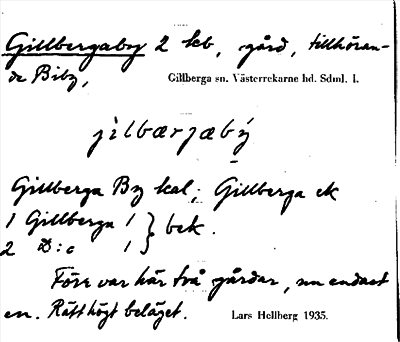 Gillbergaby 2 leb, gård, tillhöran-
de Biby,
Gillberga sn. Västerrekarne hd. Sdml. l.
jìlbærjæbý
Gillberga By kal; Gillberga ek
1 Gillberga 1 } bek.
2 D:o 1
Förr var här två gårdar, nu endast
en. Rätt högt beläget.
Lars Hellberg 1935.